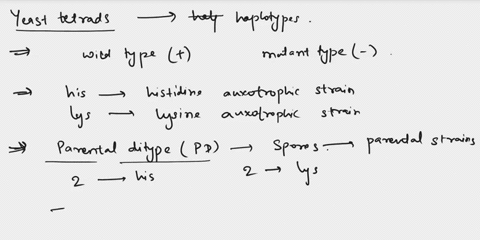 Yeast tetrads → haplotypes.
⇒ wild type (+) mutant type (-).
⇒ his → histidine auxotrophic strain
lys → lysine auxotrophic strain
⇒ Parental ditype (PD) → Spores → parental strains
2 → his 2 → lys